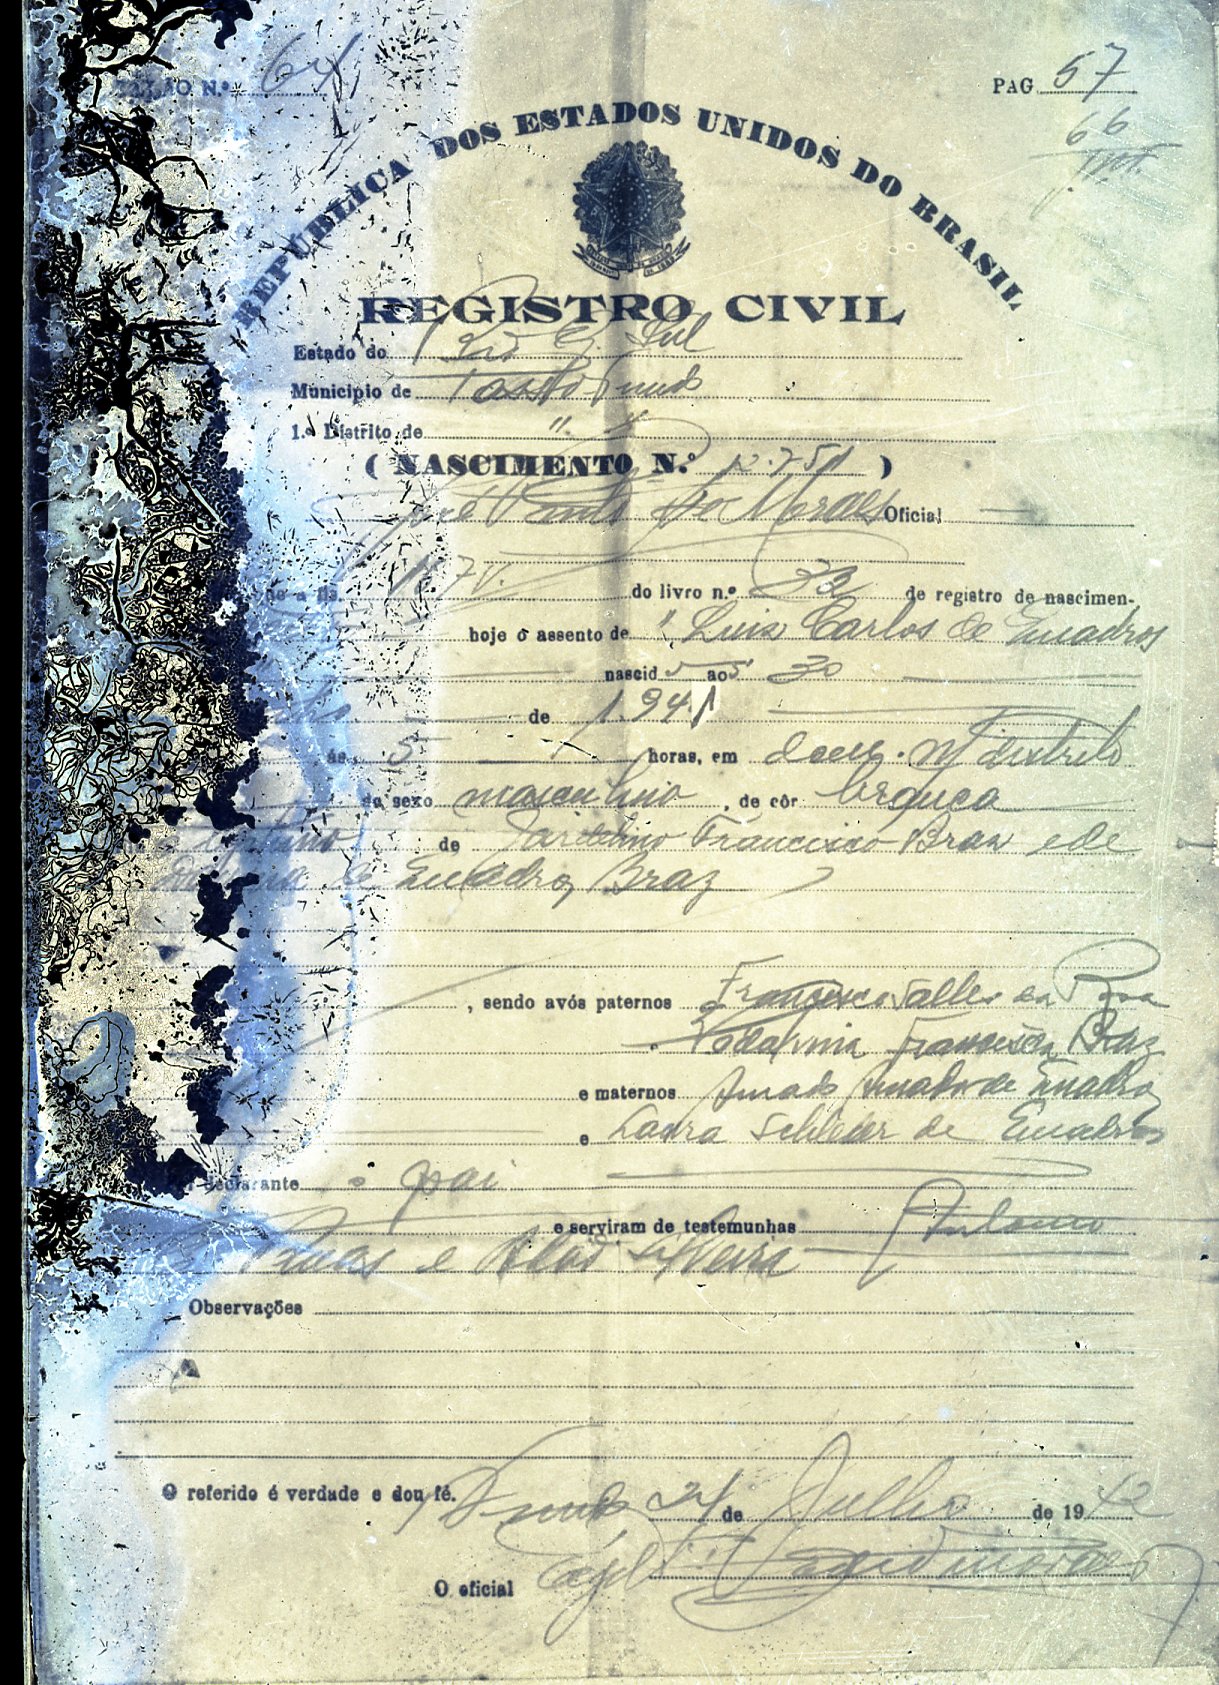 N.º 64
PAG 57
66
REPÚBLICA DOS ESTADOS UNIDOS DO BRASIL
REGISTRO CIVIL
Estado do Rio G. Sul
Municipio de Passo Fundo
1.º Distrito de " "
( NASCIMENTO N.º 12.751 )
José Paulo de Moraes Oficial
a fls. 117v. do livro n.º 33 de registro de nascimen-
hoje o assento de "Luis Carlos de Quadros
nascido aos 30
de 1.941
ás 5 horas, em distrito
do sexo masculino, de côr branca
de Francisco Braz e de
de Quadros Braz
, sendo avós paternos Francisco Salles da Rosa
Francisca Braz
e maternos de Quadros
e Laura Schleder de Quadros
declarante o pai
e serviram de testemunhas Antonio
e Silveira
Observações
O referido é verdade e dou fé. P. Fundo 24 de Julho de 1942
O oficial